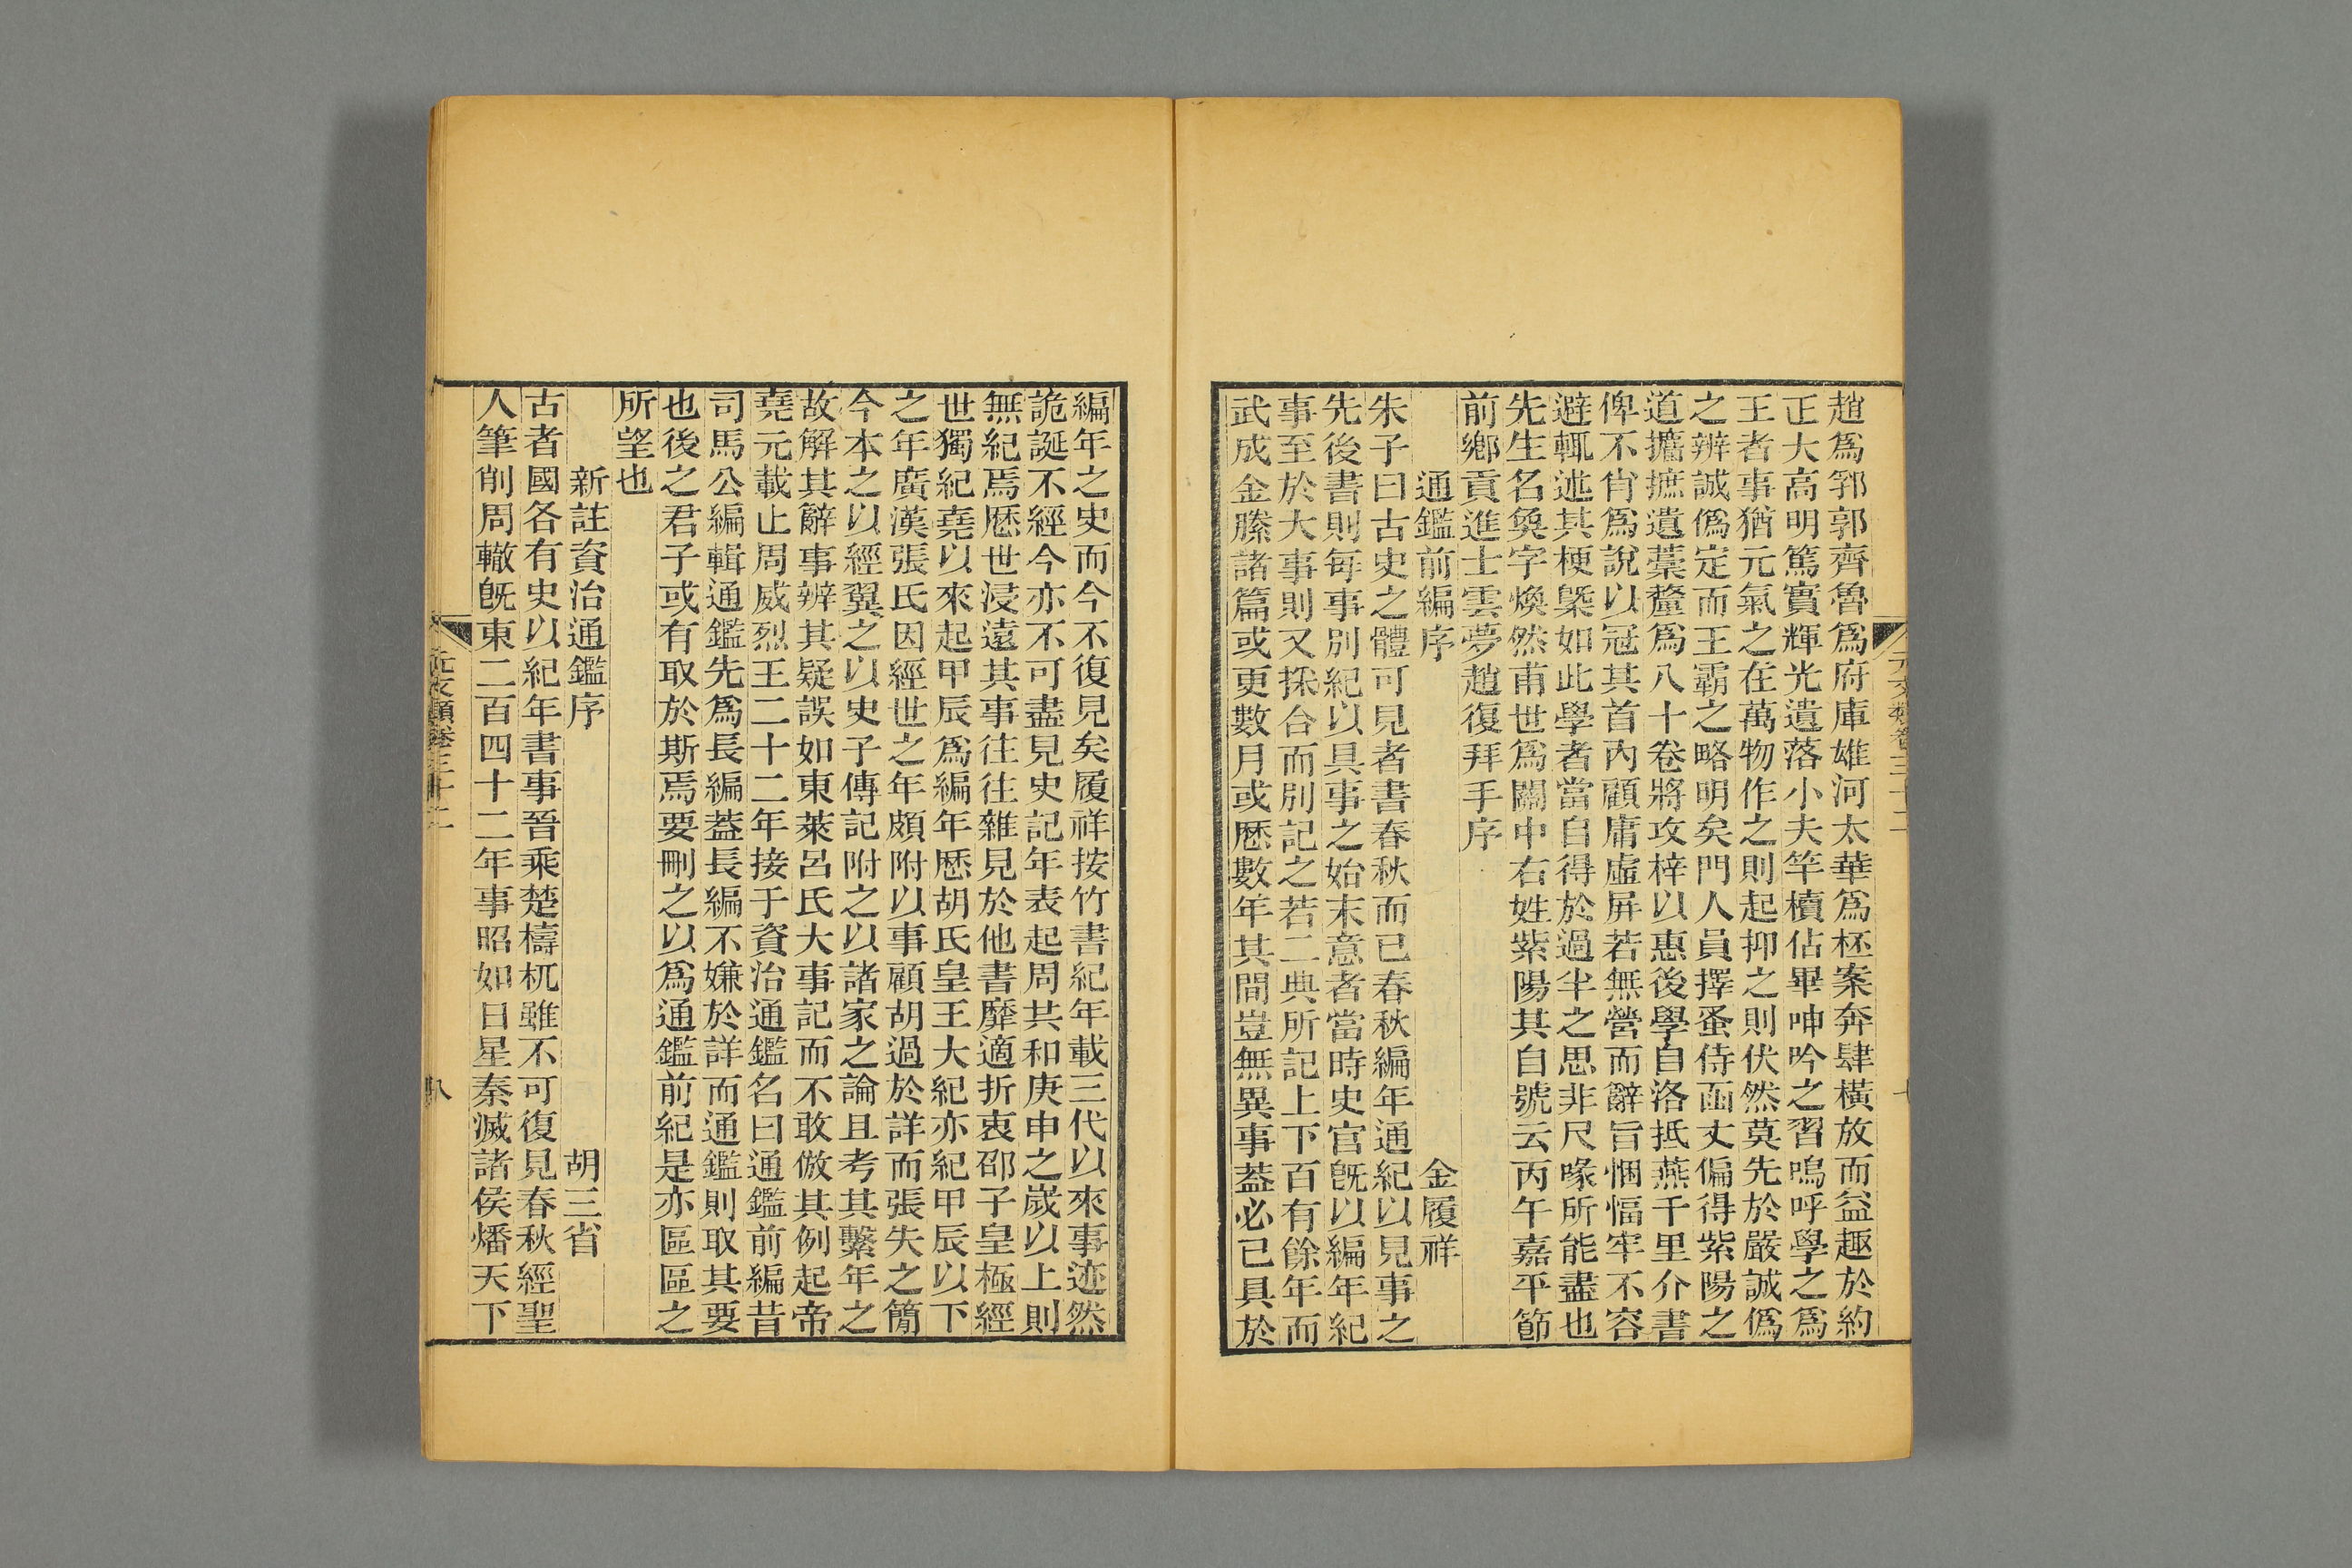 趙爲郛郭齊魯爲府庫雄河太華爲柸案奔肆橫放而益趣於約
正大高明篤實輝光遺落小夫竿櫝佔畢呻吟之習嗚呼學之爲
王者事猶元氣之在萬物作之則起抑之則伏然莫先於嚴誠僞
之辨誠僞定而王霸之略明矣門人員擇蚤侍函丈偏得紫陽之
道攟摭遺藁釐爲八十卷將攻梓以惠後學自洛抵燕千里介書
俾不肖爲說以冠其首內顧庸虛屏若無營而辭旨悃愊牢不容
避輒述其梗槩如此學者當自得於過半之思非尺喙所能盡也
先生名奐字煥然甫世爲關中右姓紫陽其自號云丙午嘉平節
前鄉貢進士雲夢趙復拜手序
通鑑前編序　金履祥
朱子曰古史之體可見者書春秋而已春秋編年通紀以見事之
先後書則每事別紀以具事之始末意者當時史官旣以編年紀
事至於大事則又採合而別記之若二典所記上下百有餘年而
武成金縢諸篇或更數月或歷數年其間豈無異事葢必已具於
編年之史而今不復見矣履祥按竹書紀年載三代以來事迹然
詭誕不經今亦不可盡見史記年表起周共和庚申之歲以上則
無紀焉歷世浸遠其事往往雜見於他書靡適折衷邵子皇極經
世獨紀堯以來起甲辰爲編年歷胡氏皇王大紀亦紀甲辰以下
之年廣漢張氏因經世之年頗附以事顧胡過於詳而張失之簡
今本之以經翼之以史子傳記附之以諸家之論且考其繫年之
故解其辭事辨其疑誤如東萊呂氏大事記而不敢倣其例起帝
堯元載止周威烈王二十二年接于資治通鑑名曰通鑑前編昔
司馬公編輯通鑑先爲長編葢長編不嫌於詳而通鑑則取其要
也後之君子或有取於斯焉要刪之以爲通鑑前紀是亦區區之
所望也
新註資治通鑑序　胡三省
古者國各有史以紀年書事晉乘楚檮杌雖不可復見春秋經聖
人筆削周轍旣東二百四十二年事昭如日星秦滅諸侯燔天下
元文類卷三十二
八